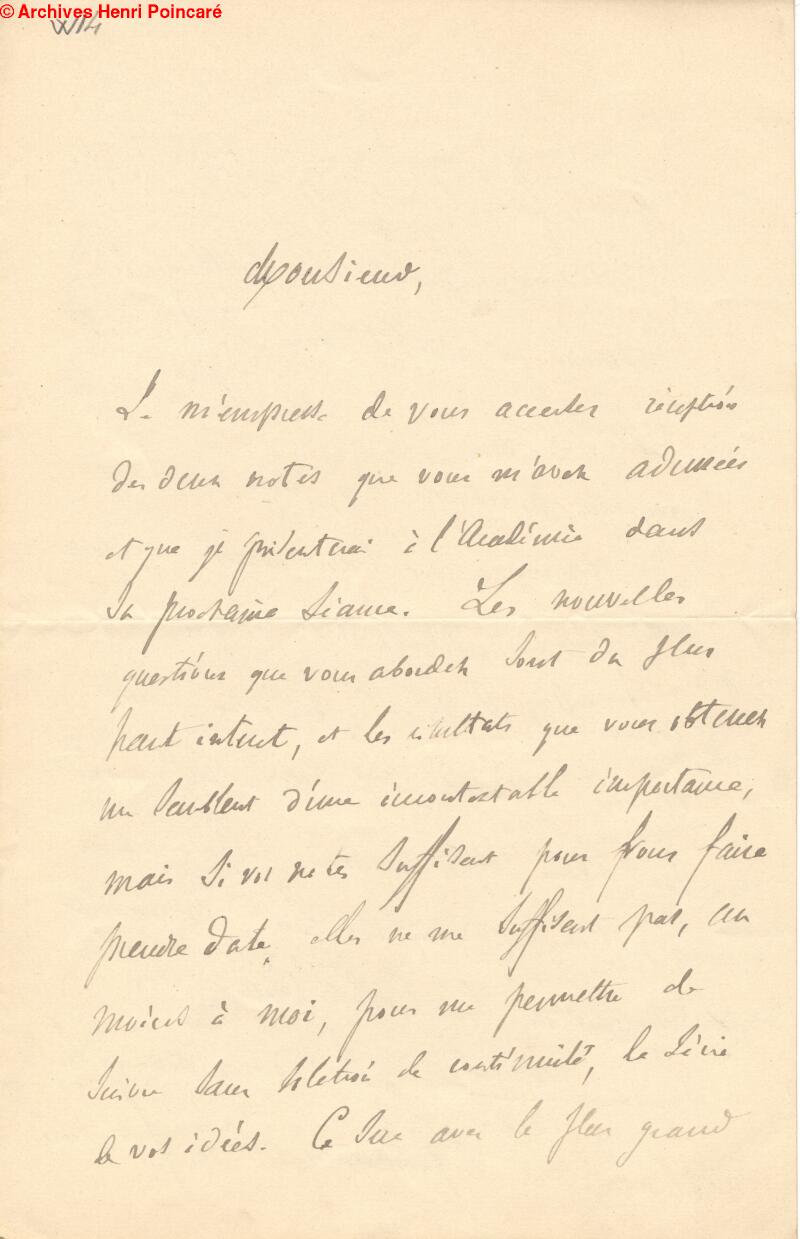 © Archives Henri Poincaré
W14
Monsieur,
Je m'empresse de vous accuser réception
des deux notes que vous m'avez adressées
et que je présenterai à l'Académie dans
sa prochaine séance. Les nouvelles
questions que vous abordez sont du plus
haut intérêt, et les résultats que vous obtenez
me semblent d'une incontestable importance,
mais si vos notes suffisent pour vous faire
prendre date, elles ne me suffisent pas, au
moins à moi, pour me permettre de
suivre sans solution de continuité, la série
de vos idées. Ce sera avec le plus grand